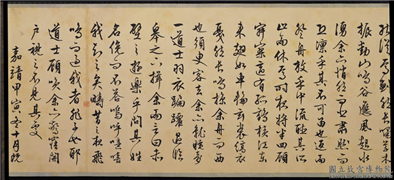 劃然長嘯草木
振動山鳴谷應風起水
湧余亦悄然而悲肅然而
恐凜乎其不可留也返而
登舟放乎中流聽其所
止而休焉時夜將半四顧
寂寥適有孤鶴橫江東
來翅如車輪玄裳縞衣
戛然長鳴掠余舟而西
也須臾客去余亦就睡夢
一道士羽衣蹁躚過臨
皋之下揖余而言曰赤
壁之遊樂乎問其姓
名俛而不答嗚呼噫嘻
我知之矣疇昔之夜飛
鳴而過我者非子也耶
道士顧笑余亦驚寤開
戶視之不見其處
嘉靖甲寅冬十月既
國立故宮博物院